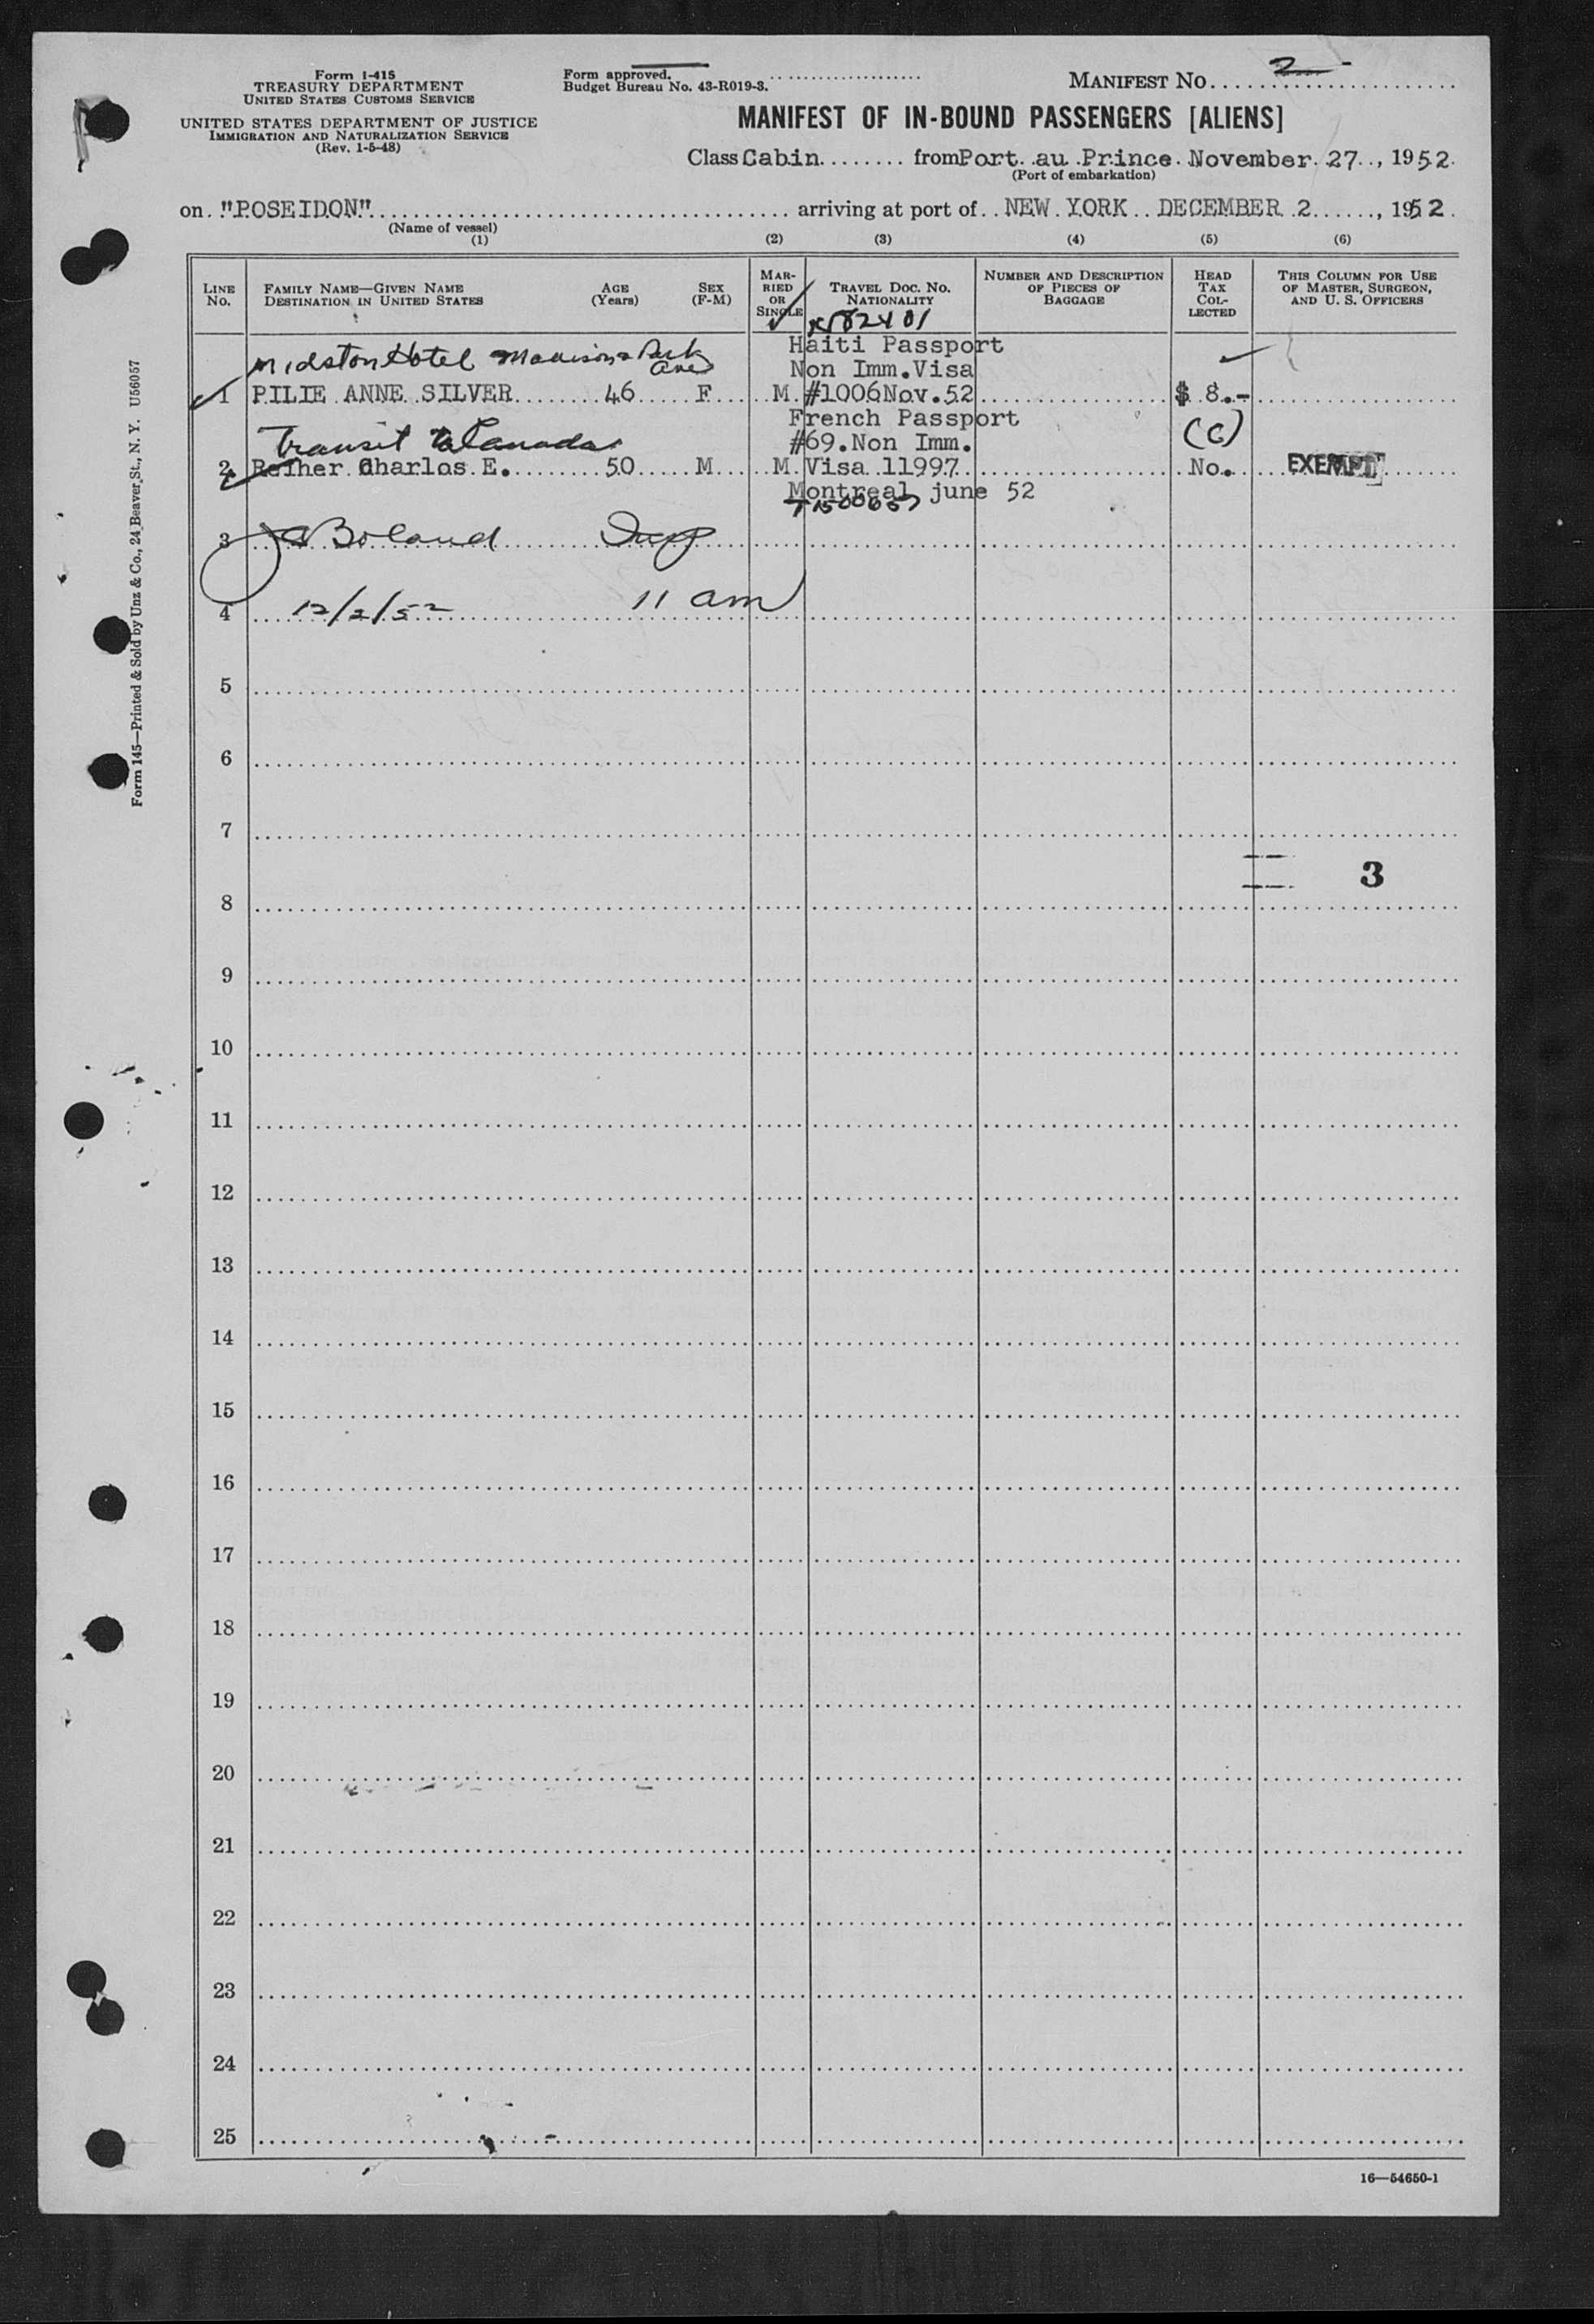 Form I-415
TREASURY DEPARTMENT
UNITED STATES CUSTOMS SERVICE
UNITED STATES DEPARTMENT OF JUSTICE
IMMIGRATION AND NATURALIZATION SERVICE
(Rev. 1-5-48)
Form approved.
Budget Bureau No. 43-R019-3.
MANIFEST NO. 2
MANIFEST OF IN-BOUND PASSENGERS [ALIENS]
Class Cabin from Port au Prince November 27, 1952
(Port of embarkation)
on "POSEIDON" arriving at port of NEW YORK DECEMBER 2, 1952
(Name of vessel)
(1) (2) (3) (4) (5) (6)
LINE NO.
FAMILY NAME—GIVEN NAME
DESTINATION IN UNITED STATES
AGE (Years)
SEX (F-M)
MARRIED OR SINGLE
TRAVEL DOC. NO.
NATIONALITY
NUMBER AND DESCRIPTION OF PIECES OF BAGGAGE
HEAD TAX COLLECTED
THIS COLUMN FOR USE OF MASTER, SURGEON, AND U. S. OFFICERS
82401
Haiti Passport
Midston Hotel Madison & Park Ave
Non Imm.Visa
1 PILIE ANNE SILVER 46 F M. #1006Nov.52 $ 8.-
French Passport
Transit to Canada #69.Non Imm. (C)
2 Reiher Charles E. 50 M M. Visa 11997 No. EXEMPT
Montreal june 52
3 Boland Insp
4 12/2/52 11 am
5
6
7
3
8
9
10
11
12
13
14
15
16
17
18
19
20
21
22
23
24
25
16—54650-1
Form 145—Printed & Sold by Unz & Co., 24 Beaver St., N. Y. U56057